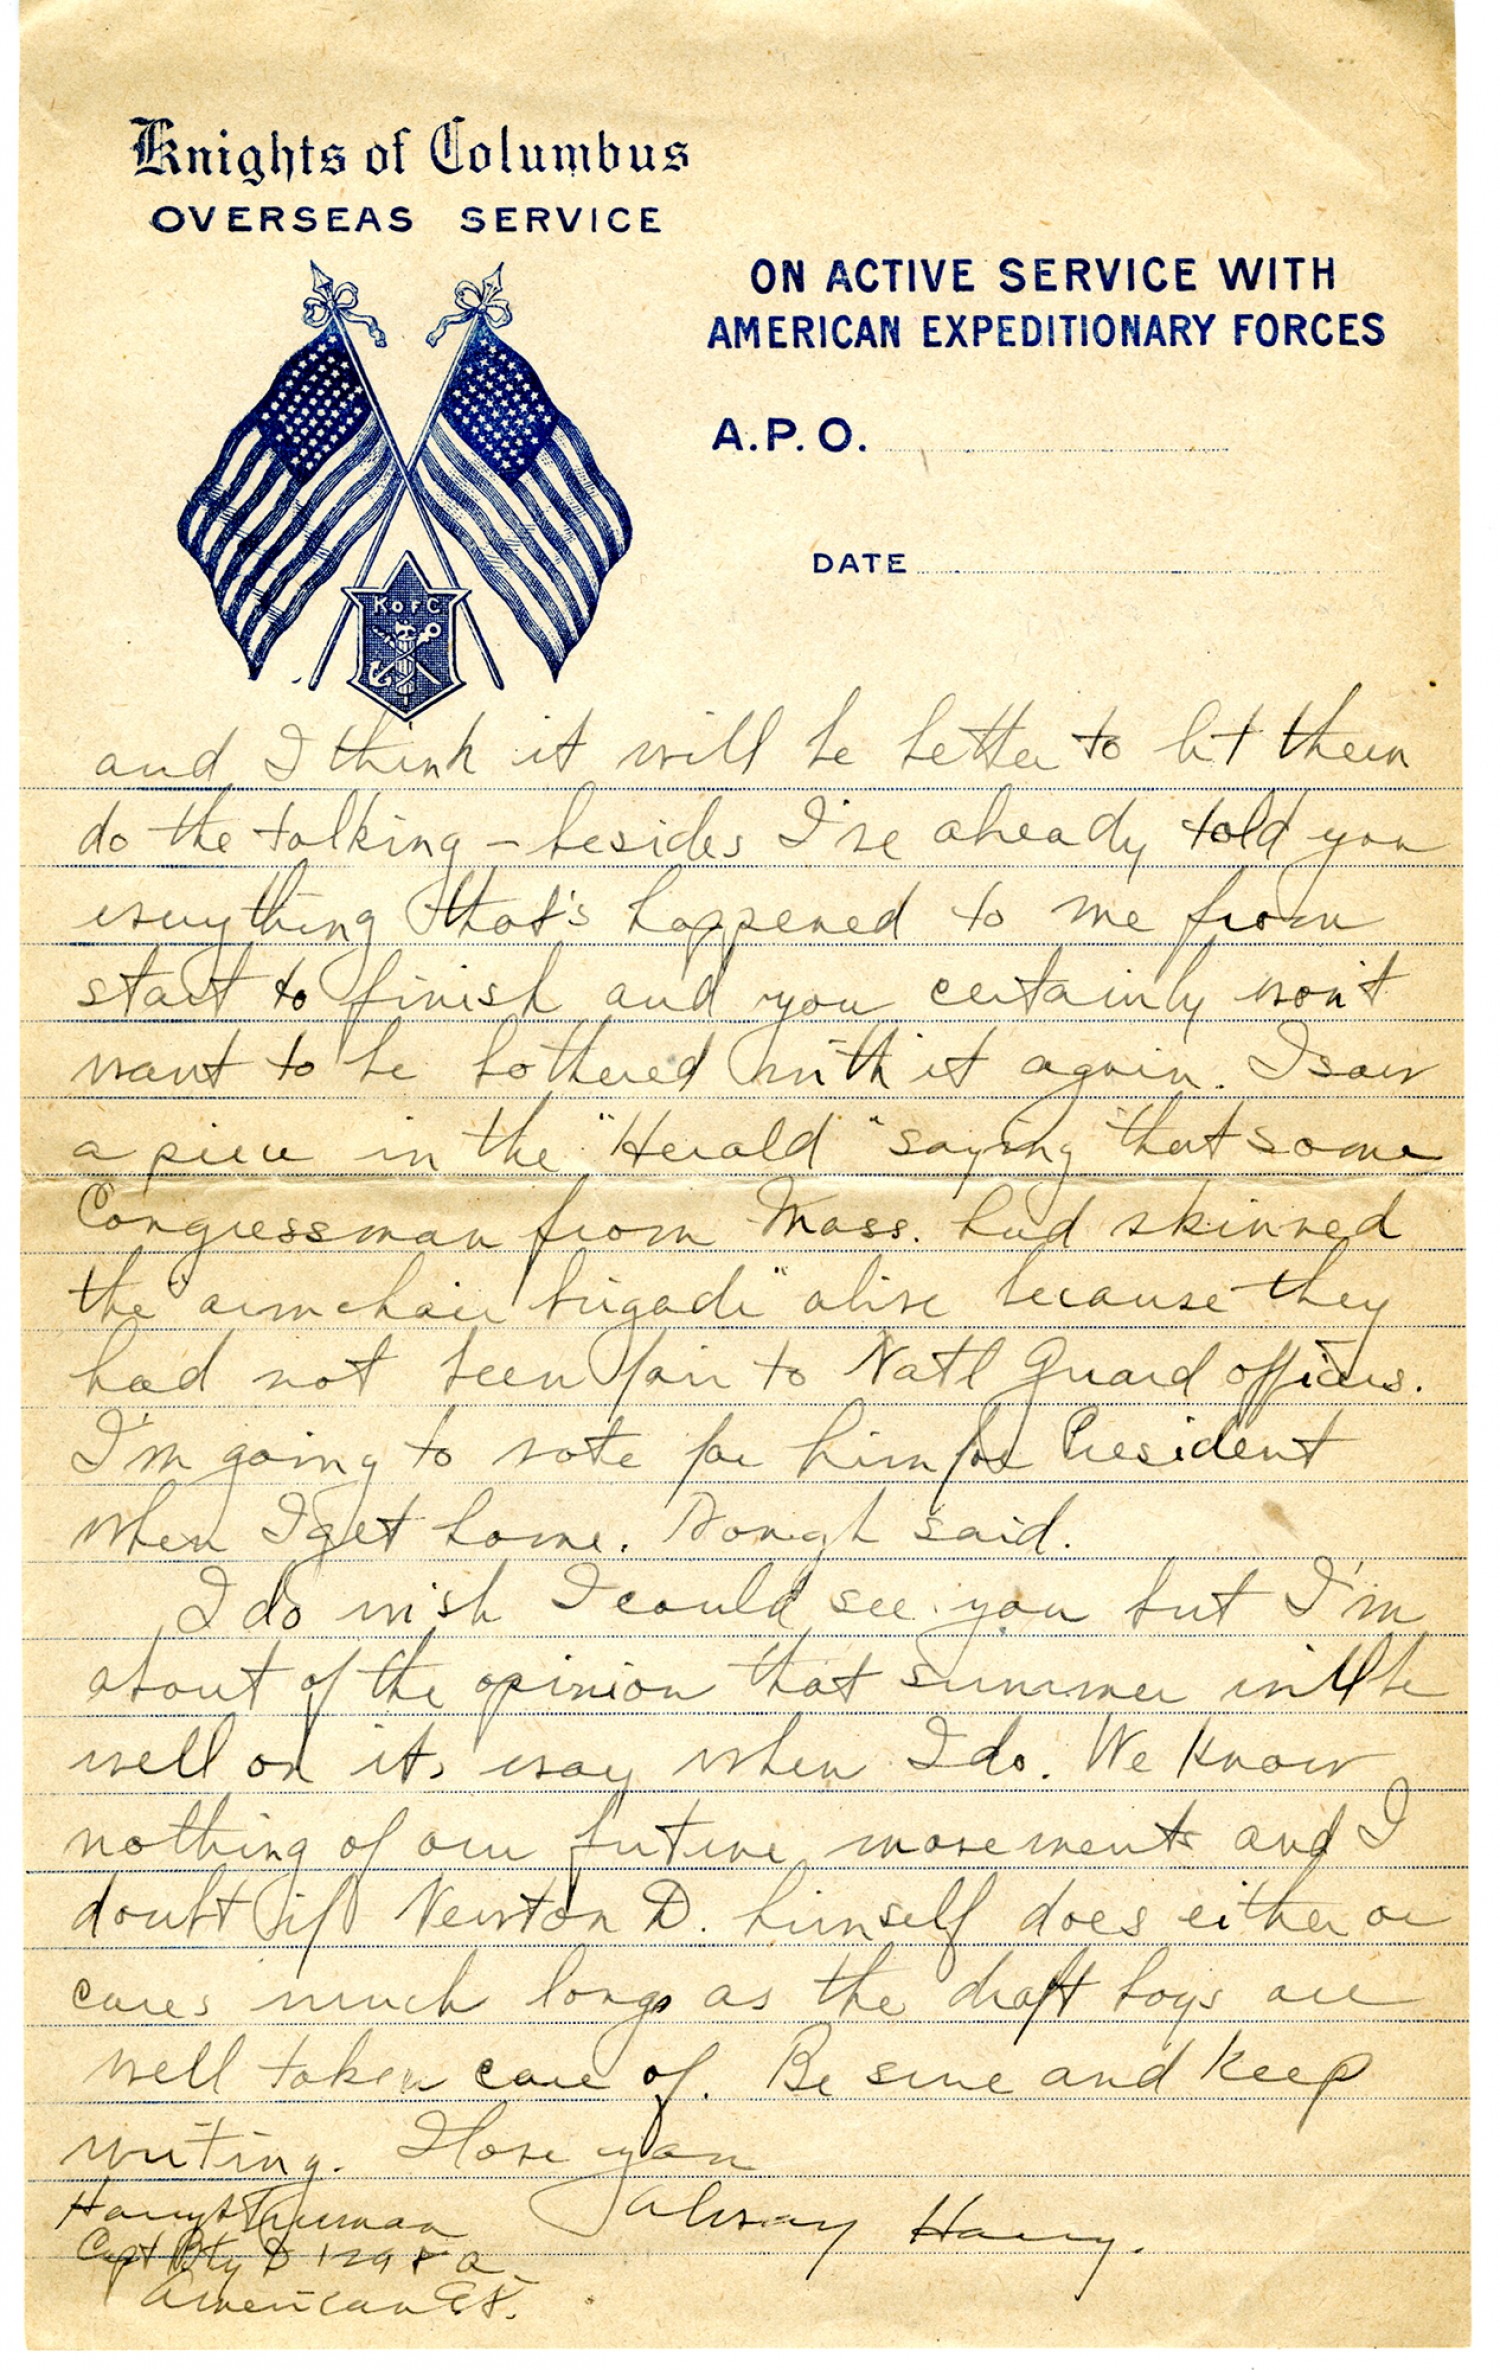 Knights of Columbus
OVERSEAS SERVICE
ON ACTIVE SERVICE WITH
AMERICAN EXPEDITIONARY FORCES
A.P.O.
DATE
K OF C
and I think it will be better to let them
do the talking - besides I've already told you
everything that's happened to me from
start to finish and you certainly won't
want to be bothered with it again. I saw
a piece in the "Herald" saying that some
Congressman from Mass. had skinned
the "armchair brigade" alive because they
had not been fair to Nat'l Guard officers.
I'm going to vote for him for President
when I get home. Nough said.
I do wish I could see you but I'm
about of the opinion that summer will be
well on its way when I do. We know
nothing of our future movements and I
doubt if Newton D. himself does either or
cares much long as the draft boys are
well taken care of. Be sure and keep
writing. I love you
Always Harry.
Harry S Truman
Capt Bty D 129 F A
American E F.